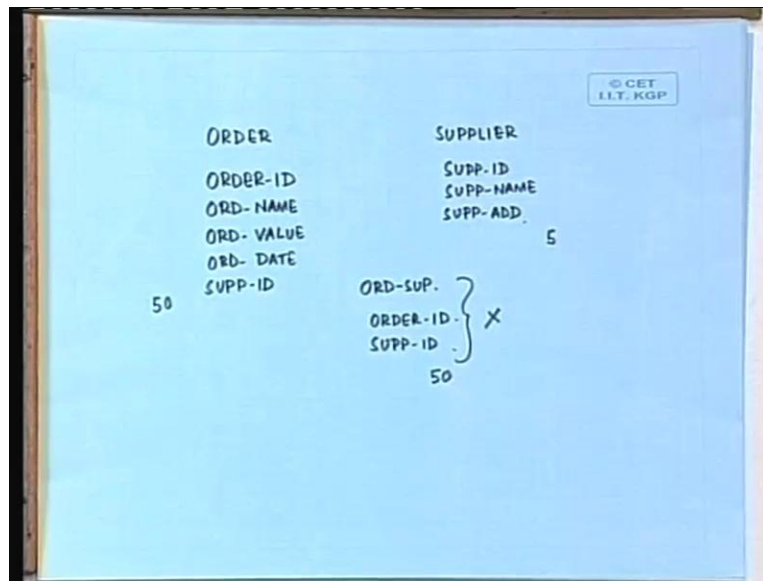 © CET
I.I.T. KGP
ORDER
ORDER-ID
ORD-NAME
ORD-VALUE
ORD-DATE
SUPP-ID
50
SUPPLIER
SUPP-ID
SUPP-NAME
SUPP-ADD.
5
ORD-SUP.
ORDER-ID.
SUPP-ID.
X
50